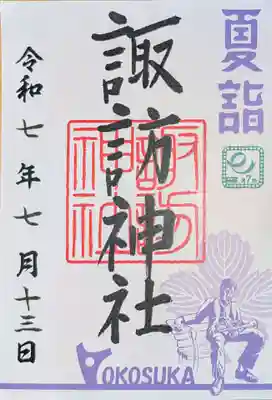 夏詣
諏訪神社
諏訪
神社
令和七年七月十三日
YOKOSUKA